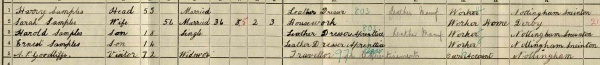 1 Harry Samples Head 53 Married Leather Dresser 803 Leather Manf Worker Nottingham Sneinton
2 Sarah Samples Wife 56 Married 36 8 5 2 3 Housework Worker Home Derby
3 Harold Samples Son 18 Single Leather Dresser Apprentice Leather Manf Worker Nottingham Sneinton
4 Ernest Samples Son 14 Leather Dresser Apprentice Worker Nottingham Sneinton
5 Visitor 72 Widower Traveller Own Account Nottingham